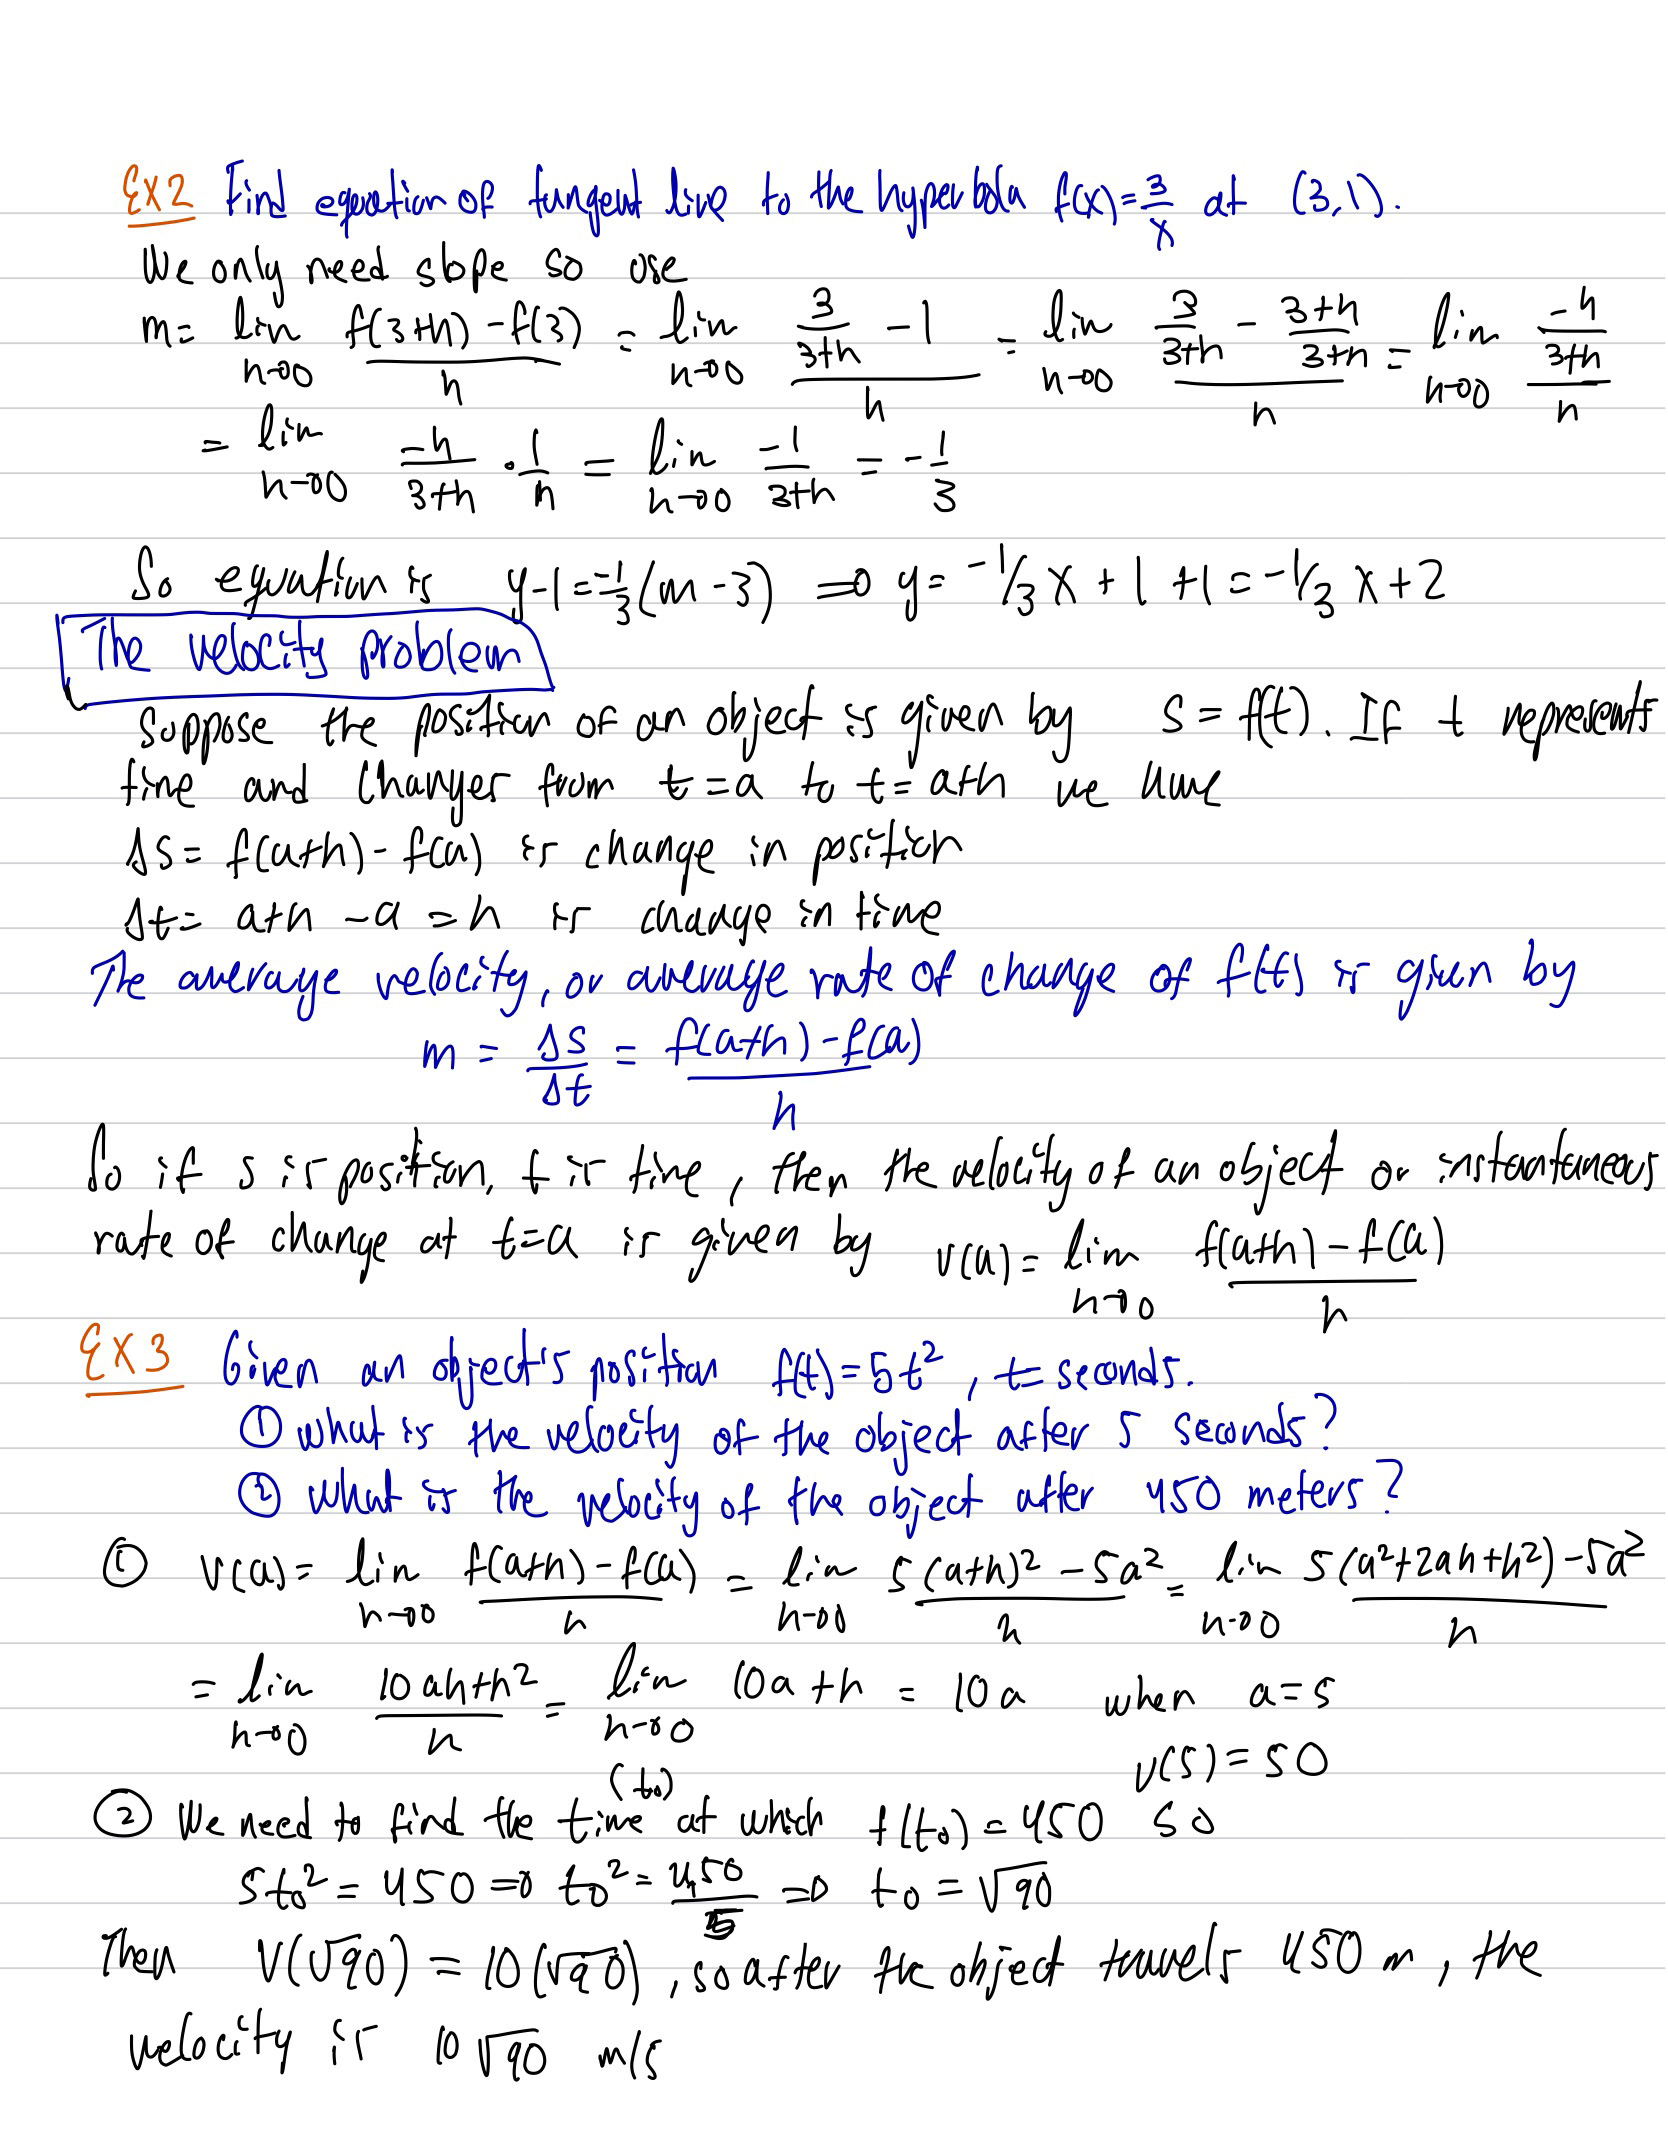 Ex2 Find equation of tangent line to the hyperbola f(x)=3/x at (3,1).
We only need slope so use
m= lim h→0 (f(3+h)-f(3))/h = lim h→0 (3/(3+h) - 1)/h = lim h→0 (3/(3+h) - (3+h)/(3+h))/h = lim h→0 (-h/(3+h))/h
= lim h→0 -h/(3+h) · 1/h = lim h→0 -1/(3+h) = -1/3
So equation is y-1=-1/3(m-3) ⇒ y= -1/3 x + 1 +1 = -1/3 x+2
The velocity problem
Suppose the position of an object is given by s = f(t). If t represents
time and changes from t=a to t= a+h we have
Δs= f(a+h)-f(a) is change in position
Δt= a+h -a =h is change in time
The average velocity, or average rate of change of f(t) is given by
m = Δs/Δt = (f(a+h)-f(a))/h
So if s is position, t is time, then the velocity of an object or instantaneous
rate of change at t=a is given by v(a)= lim h→0 (f(a+h)-f(a))/h
Ex3 Given an object's position f(t)=5t², t= seconds.
① what is the velocity of the object after 5 seconds?
② what is the velocity of the object after 450 meters?
① v(a)= lim h→0 (f(a+h)-f(a))/h = lim h→0 (5(a+h)² -5a²)/h = lim h→0 (5(a²+2ah+h²)-5a²)/h
= lim h→0 (10ah+h²)/h = lim h→0 10a+h = 10a when a=5
v(5)=50
(t₀)
② We need to find the time at which f(t₀)=450 so
5t₀²=450 ⇒ t₀²=450/5 ⇒ t₀=√90
Then V(√90) = 10(√90), so after the object travels 450 m, the
velocity is 10√90 m/s